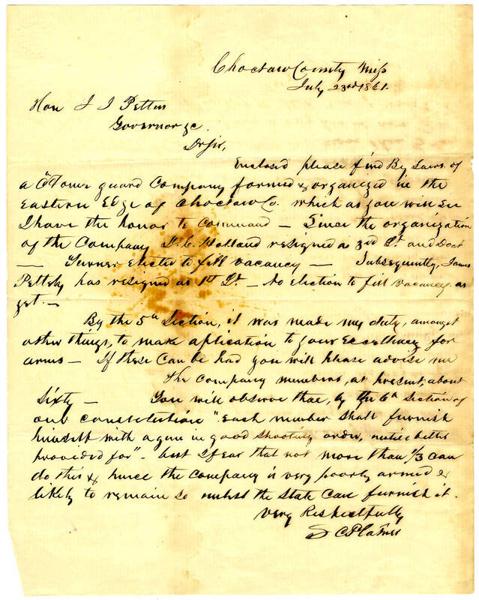 Choctaw County Miss
July 23rd 1861.
Hon J J Pettus
Governor &c.
Dr Sir,
Enclosed please find By Laws of
a "Home guard Company formed & organized in the
Eastern Edge of Choctaw Co. which as you will see
I have the honor to command — Since the organization
of the Company Holland resigned as 3rd Lt and Doct
— Turner Elected to fill vacancy — Subsequently, James
has resigned as 1st Lt — No election to fill vacancy as
yet. —
By the 5th Section, it was made my duty, amongst
other things, to make application to your Excellency for
arms — If these can be had you will please advise me
The Company numbers, at present, about
Sixty — You will observe that, by the 6th Section of
our constitution "Each member shall furnish
himself with a gun in good shooting order, until better
provided for" — but I fear that not more than 1/3 can
do this & hence the Company is very poorly armed &
likely to remain so unless the State can furnish it.
Very Respectfully
S C